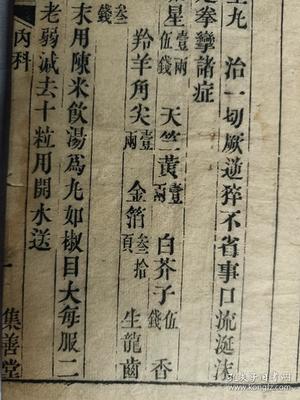 丸　治一切厥逆猝不省事口流涎沫
拳攣諸症
星 伍錢 壹兩　天竺黃 壹兩　白芥子 伍錢　香
羚羊角尖 壹兩　金箔 叁拾頁　生龍齒
叁錢
末用陳米飲湯為丸如椒目大每服二
老弱減去十粒用開水送
內科　一　集善堂